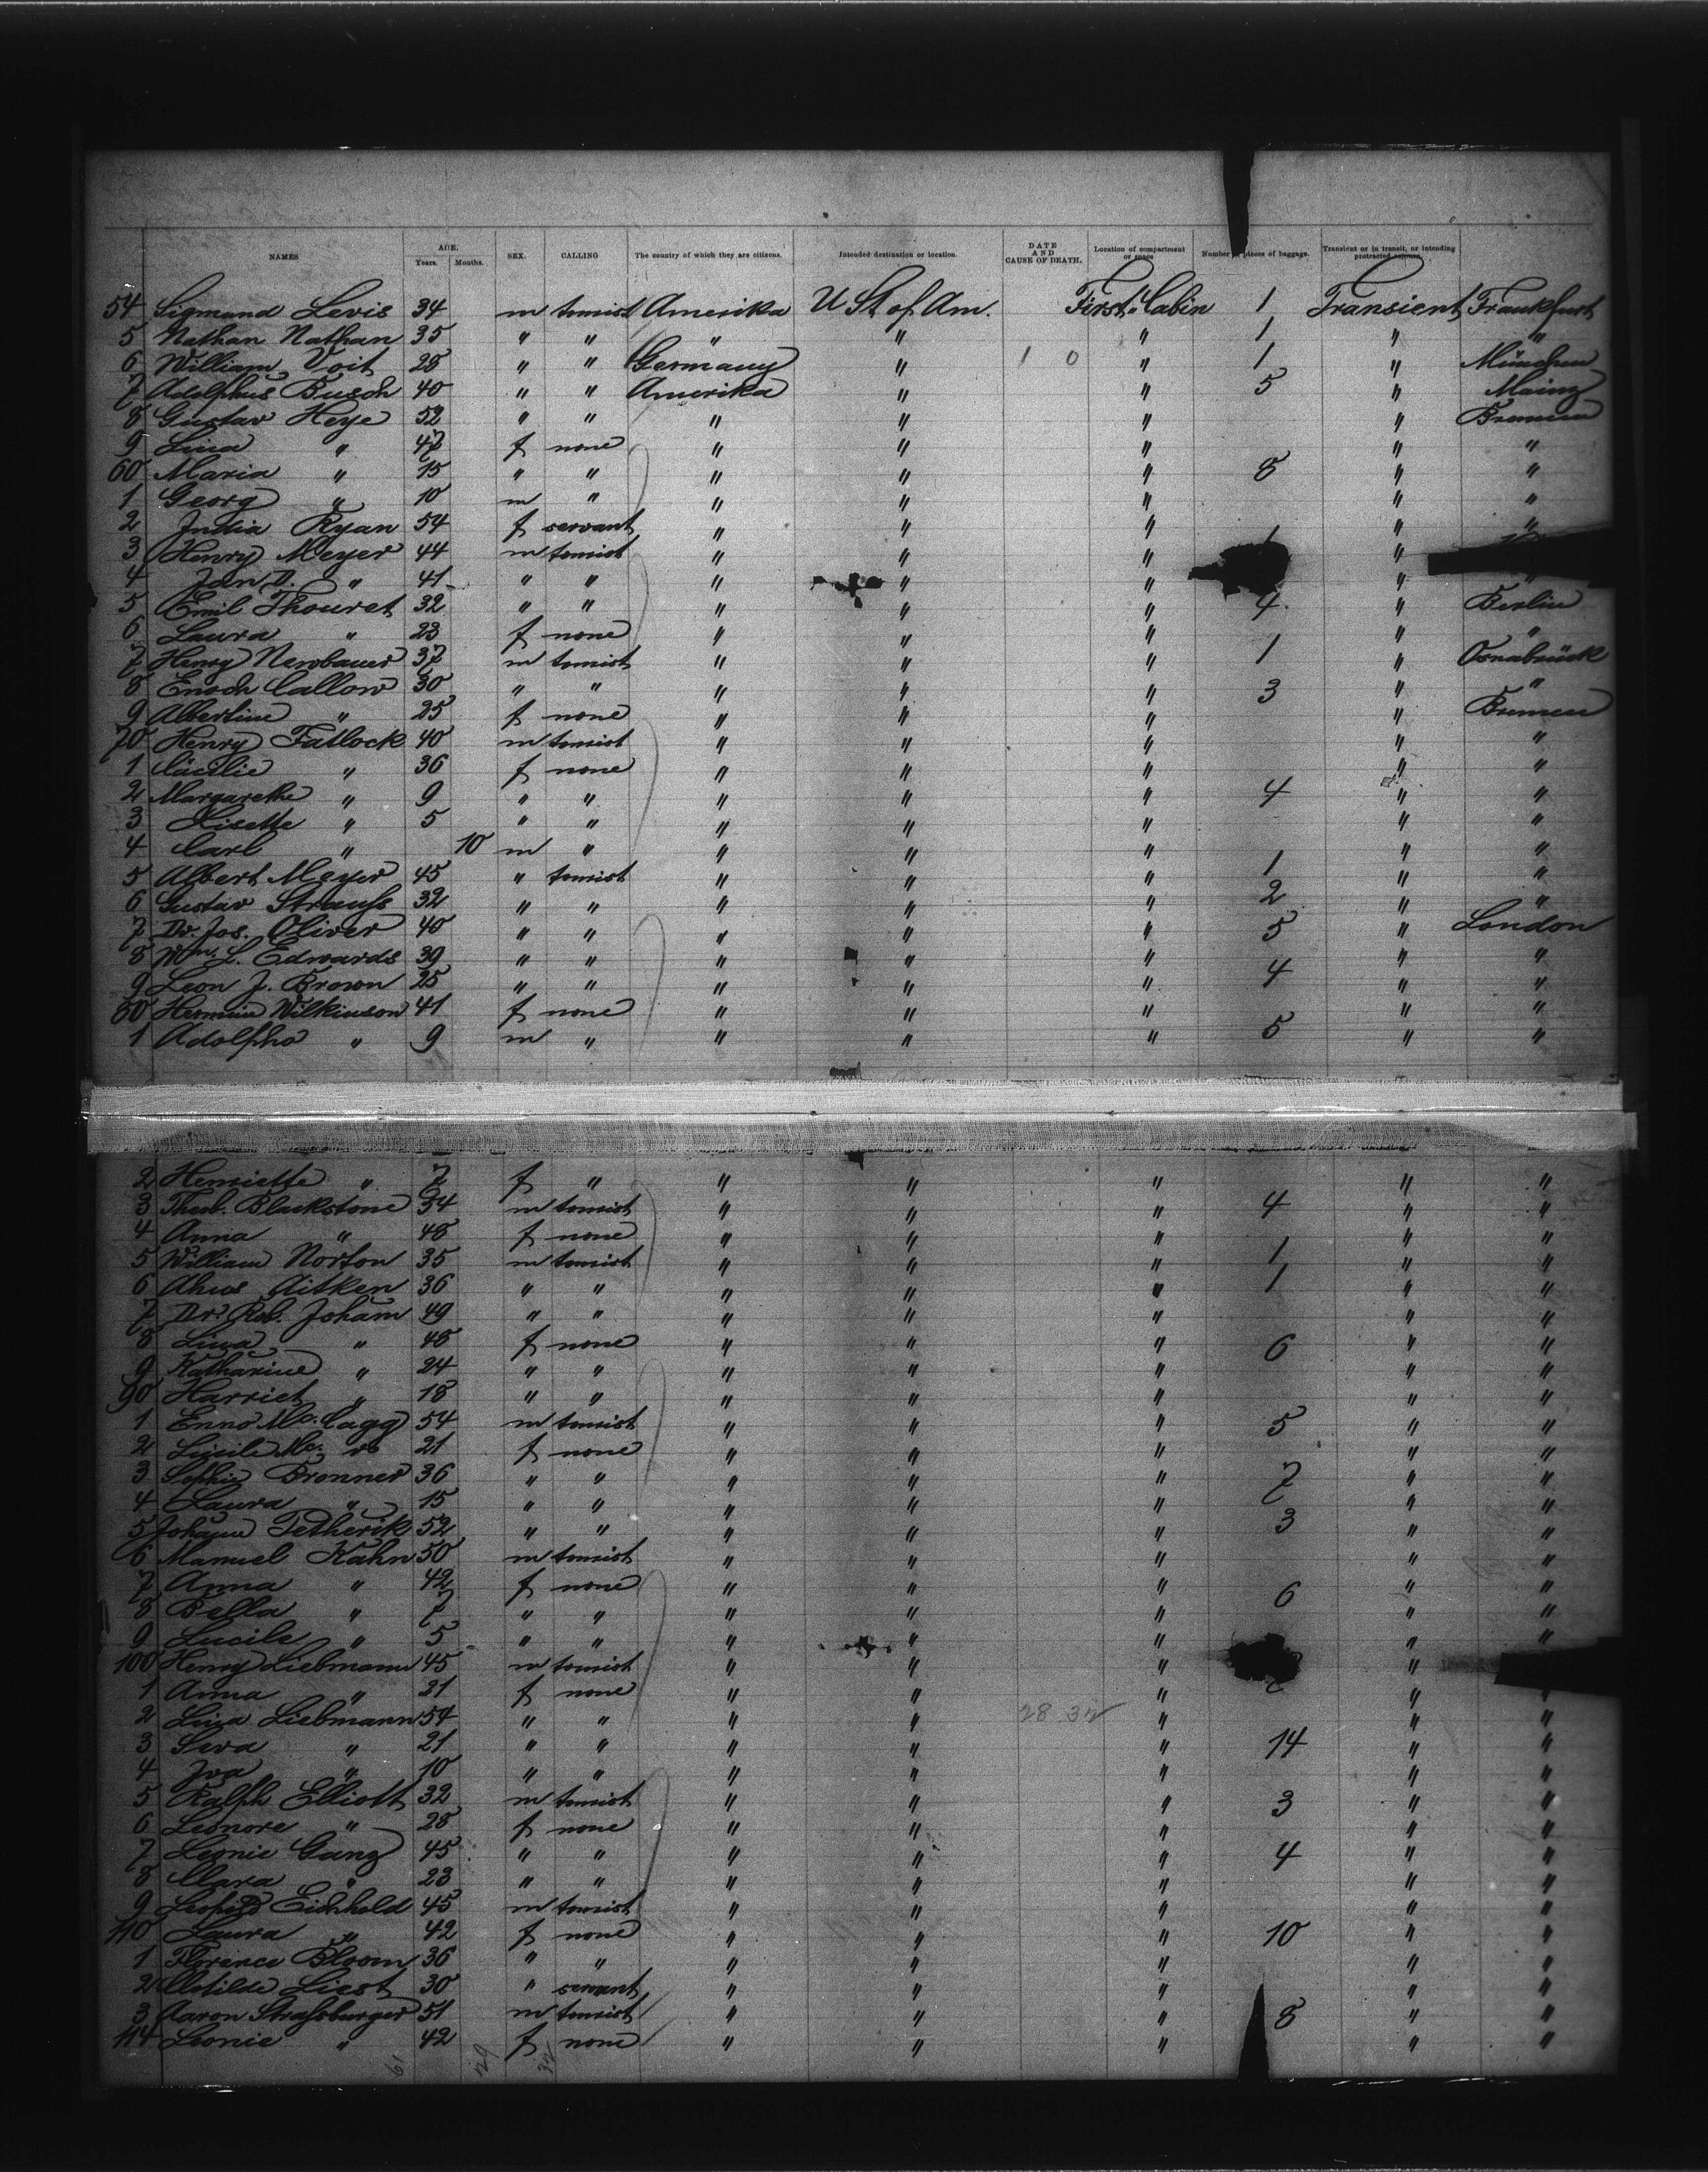 NAMES AGE. Years. Months. SEX. CALLING The country of which they are citizens. Intended destination or location. DATE AND CAUSE OF DEATH. Location of compartment or space Number of pieces of baggage. Transient or in transit, or intending protracted sojourn.
54 Sigmund Levis 34 m tourist Amerika U St. of Am. First Cabin 1 Transient Frankfurt
5 Nathan Nathan 35 " " " " " 1 " "
6 William Voit 28 " " Germany " 1 0 " 1 " München
7 Adolphus Busch 40 " " Amerika " " 5 " Mainz
8 Gustav Heye 52 " " " " " " Bremen
9 Lina " 47 f none " " " " "
60 Maria " 15 " " " " " 8 " "
1 Georg " 10 m " " " " " "
2 India Ryan 54 f servant " " " " "
3 Henry Meyer 44 m tourist " " " 1 "
4 " 41 " " " " " " "
5 Emil Thouret 32 " " " " " 4 " Berlin
6 Laura " 23 f none " " " " "
7 Henry Newbauer 37 m tourist " " " 1 " Osnabrück
8 Enoch Callow 30 " " " " " 3 " "
9 Albertine " 25 f none " " " " Bremen
70 Henry Fatlock 40 m tourist " " " " "
1 Cäcilie " 36 f none " " " " "
2 Margarethe " 9 " " " " " 4 " "
3 Lisette " 5 " " " " " " "
4 Carl " 10 m " " " " " "
5 Albert Meyer 45 " tourist " " " 1 " "
6 Gustav Strauß 32 " " " " " 2 " "
7 Dr. Jos. Oliver 40 " " " " " 5 " London
8 Wm. L. Edwards 39 " " " " " " "
9 Leon J. Brown 25 " " " " " 4 " "
80 Hermine Wilkinson 41 f none " " " " "
1 Adolpho " 9 m " " " " 5 " "
2 Henriette " 7 f " " " " " "
3 Theob. Blackstone 54 m tourist " " " 4 " "
4 Anna " 48 f none " " " " "
5 William Norton 35 m tourist " " " 1 " "
6 Aitken 36 " " " " " 1 " "
7 Dr. Rob. Joham 49 " " " " " " "
8 Lina " 48 f none " " " 6 " "
9 Katharine " 24 " " " " " " "
90 Harriet " 18 " " " " " " "
1 Enno Mc. Cagg 54 m tourist " " " 5 " "
2 Mc. do 21 f none " " " " "
3 Sophie Bronner 36 " " " " " 7 " "
4 Laura " 15 " " " " " " "
5 Petherik 52 " " " " " 3 " "
6 Manuel Kahn 50 m tourist " " " " "
7 Anna " 42 f none " " " 6 " "
8 Bella " 7 " " " " " " "
9 Lucile " 5 " " " " " " "
100 Henry Liebmann 45 m tourist " " " "
1 Anna " 31 f none " " " " "
2 Lina Liebmann 54 " " " " 28 32 " " "
3 " 21 " " " " " 14 " "
4 Iva " 10 " " " " " " "
5 Ralph Elliott 32 m tourist " " " 3 " "
6 Leonore " 28 f none " " " " "
7 Leonie Ganz 45 " " " " " 4 " "
8 Clara " 23 " " " " " " "
9 Leopold Eichhold 45 m tourist " " " " "
110 Laura " 42 f none " " " 10 " "
1 Florence Bloom 36 " " " " " " "
2 Clotilde Liest 30 " servant " " " " "
3 Aaron Straßburger 51 m tourist " " " 8 " "
114 Leonie " 42 f none " " " " "
61 29 32